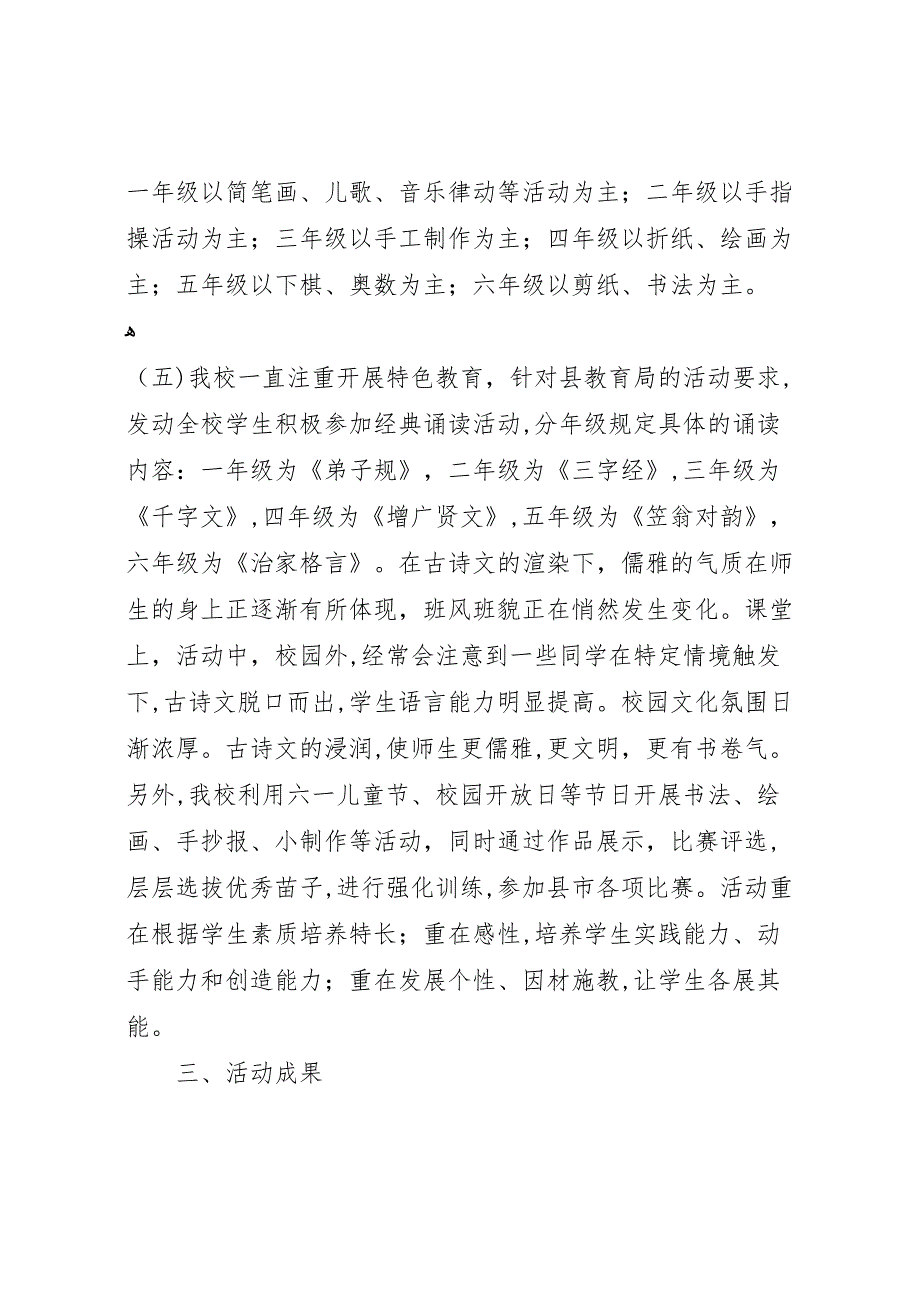 一年级以简笔画、儿歌、音乐律动等活动为主；二年级以手指
操活动为主；三年级以手工制作为主；四年级以折纸、绘画为
主；五年级以下棋、奥数为主；六年级以剪纸、书法为主。
ﻫ
（五)我校一直注重开展特色教育，针对县教育局的活动要求,
发动全校学生积极参加经典诵读活动,分年级规定具体的诵读
内容：一年级为《弟子规》，二年级为《三字经》,三年级为
《千字文》,四年级为《增广贤文》,五年级为《笠翁对韵》，
六年级为《治家格言》。在古诗文的渲染下，儒雅的气质在师
生的身上正逐渐有所体现，班风班貌正在悄然发生变化。课堂
上，活动中，校园外,经常会注意到一些同学在特定情境触发
下,古诗文脱口而出,学生语言能力明显提高。校园文化氛围日
渐浓厚。古诗文的浸润,使师生更儒雅,更文明，更有书卷气。
另外,我校利用六一儿童节、校园开放日等节日开展书法、绘
画、手抄报、小制作等活动，同时通过作品展示，比赛评选,
层层选拔优秀苗子,进行强化训练,参加县市各项比赛。活动重
在根据学生素质培养特长；重在感性,培养学生实践能力、动
手能力和创造能力；重在发展个性、因材施教,让学生各展其
能。
三、活动成果